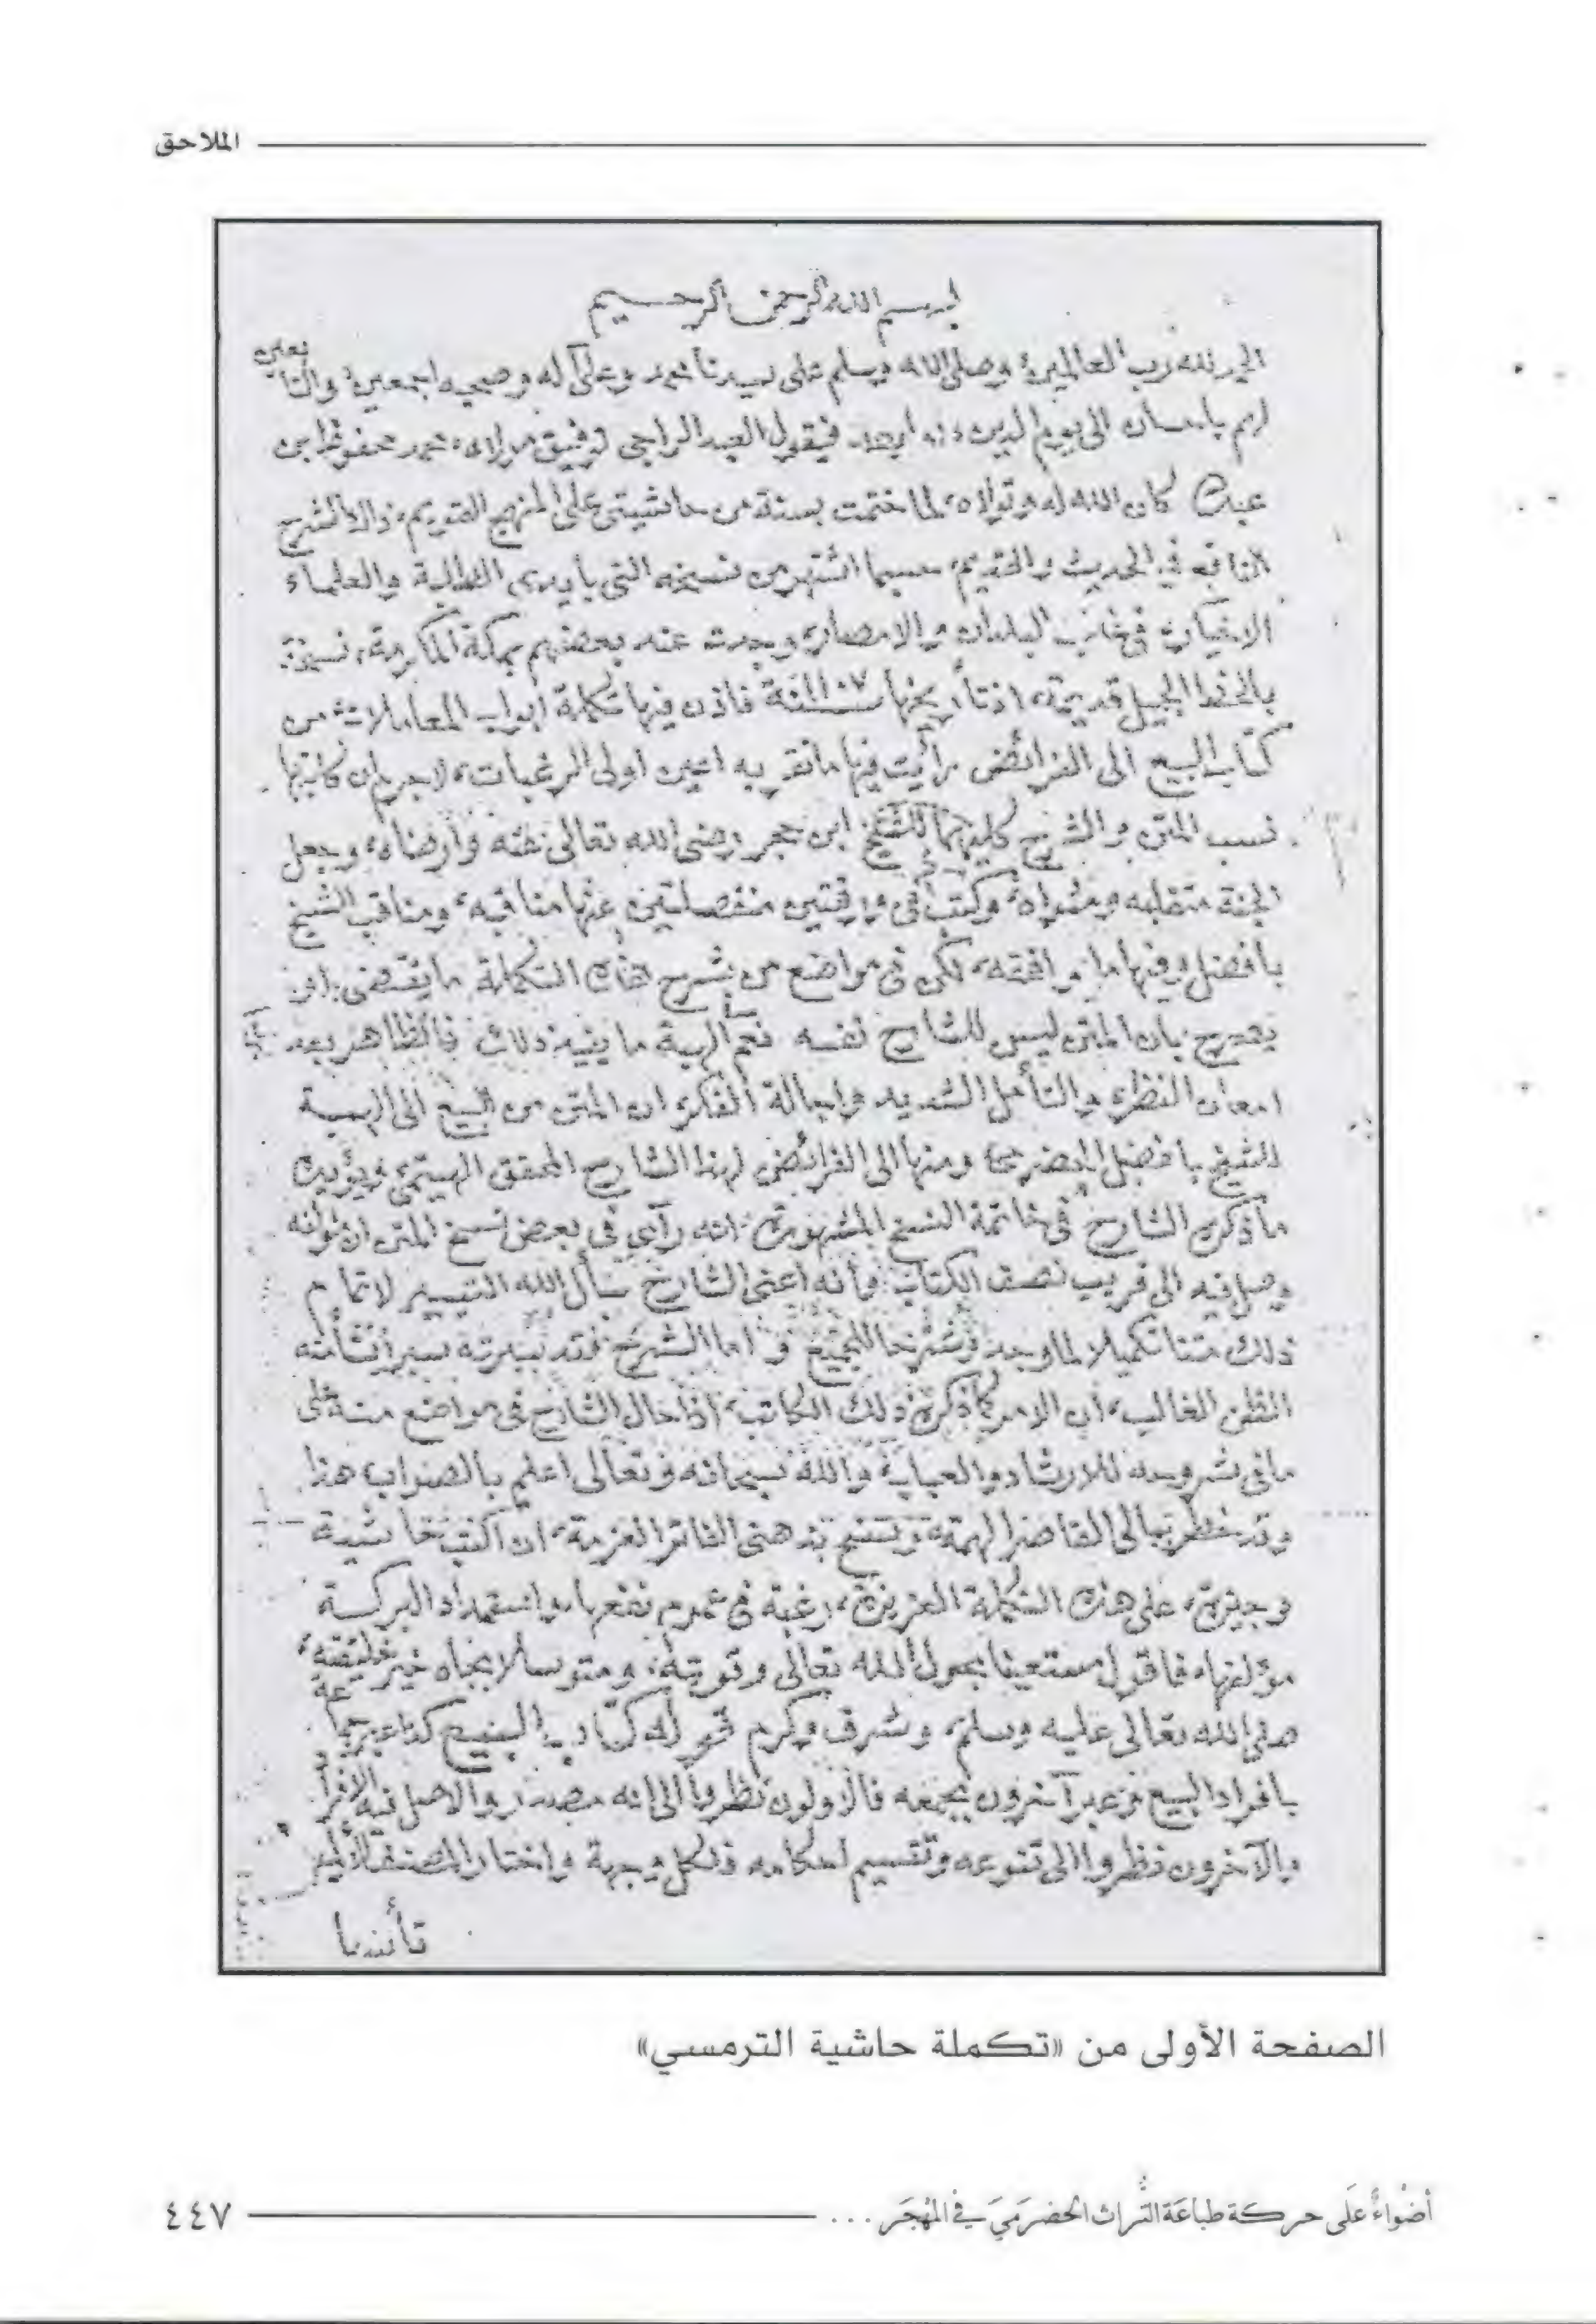 الملاحق
بسم الله الرحمن الرحيم
الحمد لله رب العالمين وصلى الله وسلم على سيدنا محمد وعلى آله وصحبه اجمعين والتابعين
لهم باحسان الى يوم الدين اما بعد فيقول العبد الراجي توفيق مولاه محمد محفوظ ابن
عبد الله كان الله له وتولاه لما ختمت بمنة من حاشيتي على المنهج القويم ذلك الشرح
النافع في الحديث والقديم حسبما اشتهر من نسخه التي بأيدي الطلبة والعلماء
الاخيار في غالب البلدان والامصار وجدت عند بعضهم بمكة المكرمة نسخة
بالخط الجميل قديمة اذ تأريخها سنة فاذن فيها تكملة ابواب المعاملات من
كتاب البيع الى الفرائض رأيت فيها ما تقر به اعين اولى الرغبات لاجرم ان كاتبها
نسب المتن والشرح كليهما للشيخ ابن حجر رضي الله تعالى عنه وأرضاه وجعل
الجنة متقلبه ومثواه وكتب في ورقتين منفصلتين عنها مناقبه ومناقب الشيخ
بافضل وفيها ما وافقه لكن في مواضع من شرح هذه التكملة ما يقتضي ان
يصرح بان المتن ليس للشارح نفسه نعم الهبة ما يفيد ذلك فالظاهر بعد
امعان النظر والتأمل الشديد واجالة الفكر ان المتن من البيع الى الهبة
للشيخ بافضل الحضرمي ومنها الى الفرائض لهذا الشارح المحقق الهيتمي ويؤيده
ما ذكره الشارح في خاتمة النسخ المشهورة انه رآى في بعض نسخ المتن ان مؤلفه
وصل فيه الى قريب نصف الكتاب وأنه اعنى الشارح سأل الله التيسير لاتمام
ذلك متنا تكميلا لما وجد وشرحا للجميع واما الشرح فقد سبرته سبرا نشأ منه
الظن الغالب ان الامر كما ذكره ذلك الكاتب اذ احال الشارح في مواضع منه على
ما في شروحه للارشاد والعباب والله سبحانه وتعالى اعلم بالصواب هذا
وقد خطر ببالي القاصر الهمة وسنح بذهني الفاتر العزمة ان اكتب حاشية
وجيزة على هذه التكملة العزيزة رغبة في عموم نفعها واستمداد البركة
مؤلفها فاقول مستعينا بحول الله تعالى وقوته ومتوسلا بجاه خير خليقته
صلى الله تعالى عليه وسلم وشرف وكرم قوله كتاب البيع كذا عبر جماعة
بافراد البيع وعبر آخرون بجمعه فالاولون نظروا الى انه مصدر والاصل فيه الافراد
والآخرون نظروا الى تنوعه وتقسيم احكامه ولكل وجهة واختار المصنف الأول
تأسيا
الصفحة الأولى من «تكملة حاشية الترمسي»
أضْواءٌ عَلَى حركة طباعَة التُّراث الحضرَميّ في المَهْجَر ...
٤٤٧